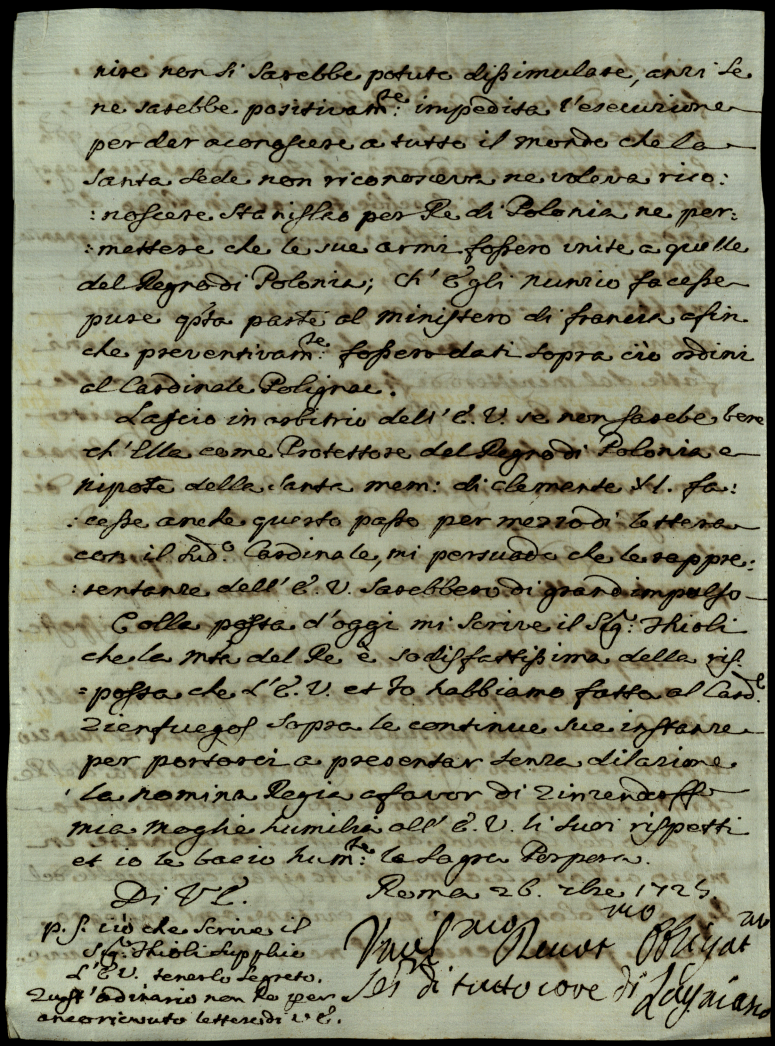 nire non si sarebbe potuto dissimulare, anzi se
ne sarebbe positivam:te impedita l'esecuzione
per dar a conoscere a tutto il mondo che la
Santa Sede non riconosceva ne voleva rico:
:noscere Stanislao per Re di Polonia ne per:
:mettere che le sue armi fossero unite a quelle
del Regno di Polonia; ch'Egli nunzio facesse
pure q'sta parte al ministero di francia afin
che preventivam:te fossero dati sopra ciò ordini
al Cardinale Polignac.
Lascio in arbitrio dell'E.V. se non sarebe bene
ch'Ella come Protettore del Regno di Polonia e
nipote della Santa mem: di Clemente XI. fa:
:cesse anche questo passo per mezzo di lettera
con il Sud.o Cardinale, mi persuado che le rappre:
:sentanze dell'E.V. sarebbero di grand impulso
Colla posta d'oggi mi scrive il Sig: Thioli
che la Mtà del Re è sodisfattissima della ris:
=posta che L'E.V. et Io habbiamo fatta al Card.e
Zienfuegos sopra le continue sue instanze
per portarci a presentar senza dilazione
la nomina Regia a favor di Zinzendorff
mia moglie humilia all'E.V. li suoi rispetti
et io le bacio hum:te la Sagra Porpora.
Di V.E. Roma 26. 7bre 1725
p.S. ciò che scrive il
Sig: Thioli supplico
L'E.V. tenerlo segreto.
Quest'ordinario non ho per
anco ricevuto lettere di V.E.
mo Devot mo Obligat mo
Ser di tutto core di